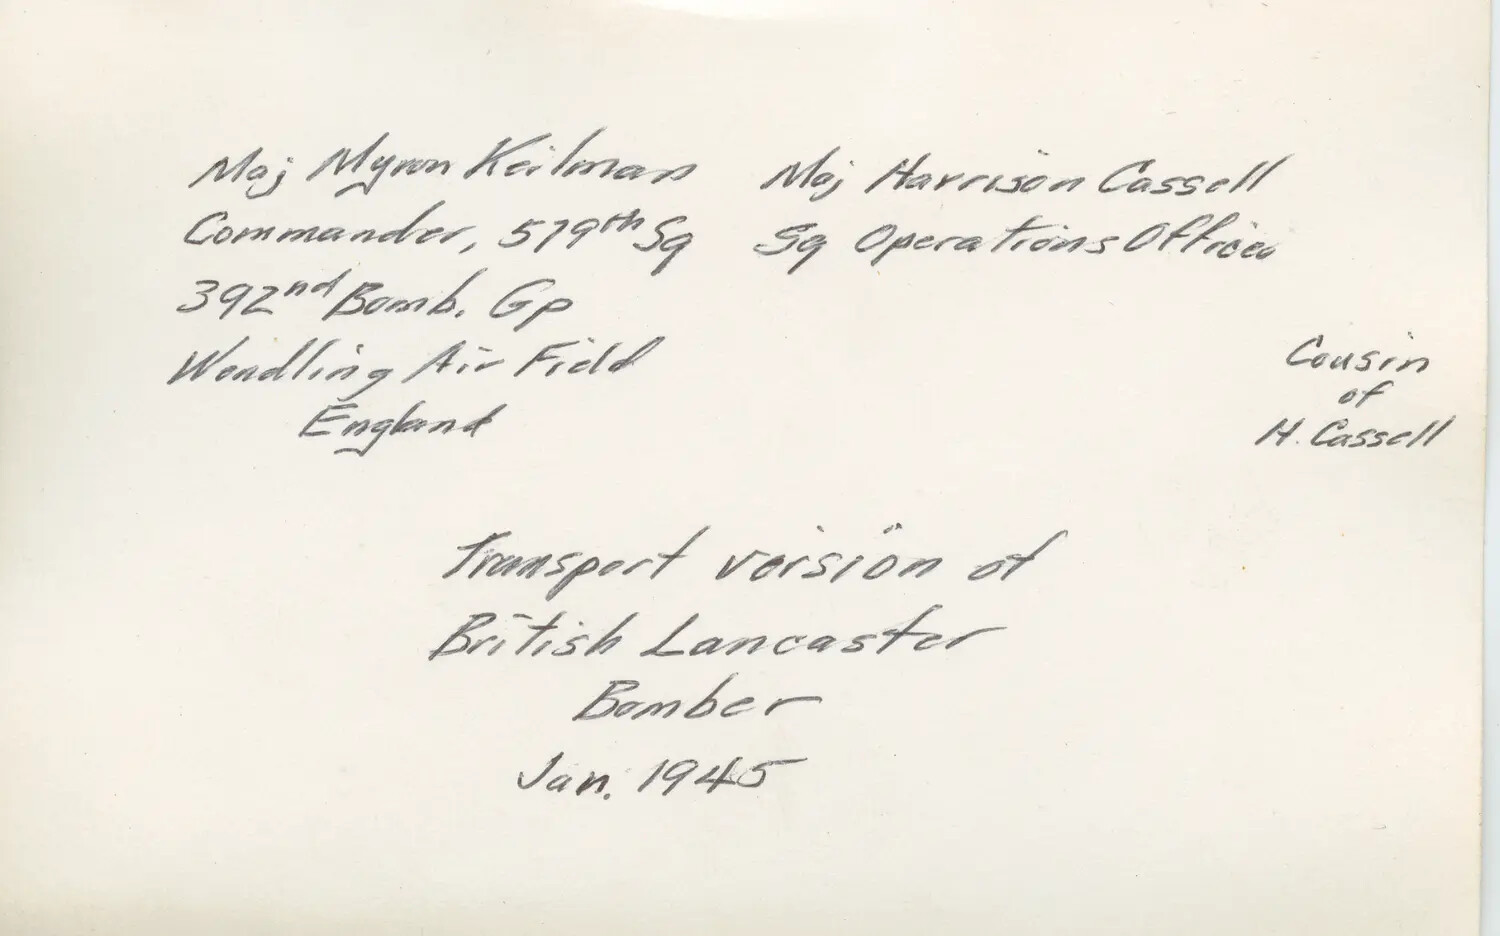 Maj Myron Keilman
Commander, 579th Sq
392nd Bomb. Gp
Wendling Air Field
England
Maj Harrison Cassell
Sq Operations Officer
Cousin
of
H. Cassell
Transport version of
British Lancaster
Bomber
Jan. 1945